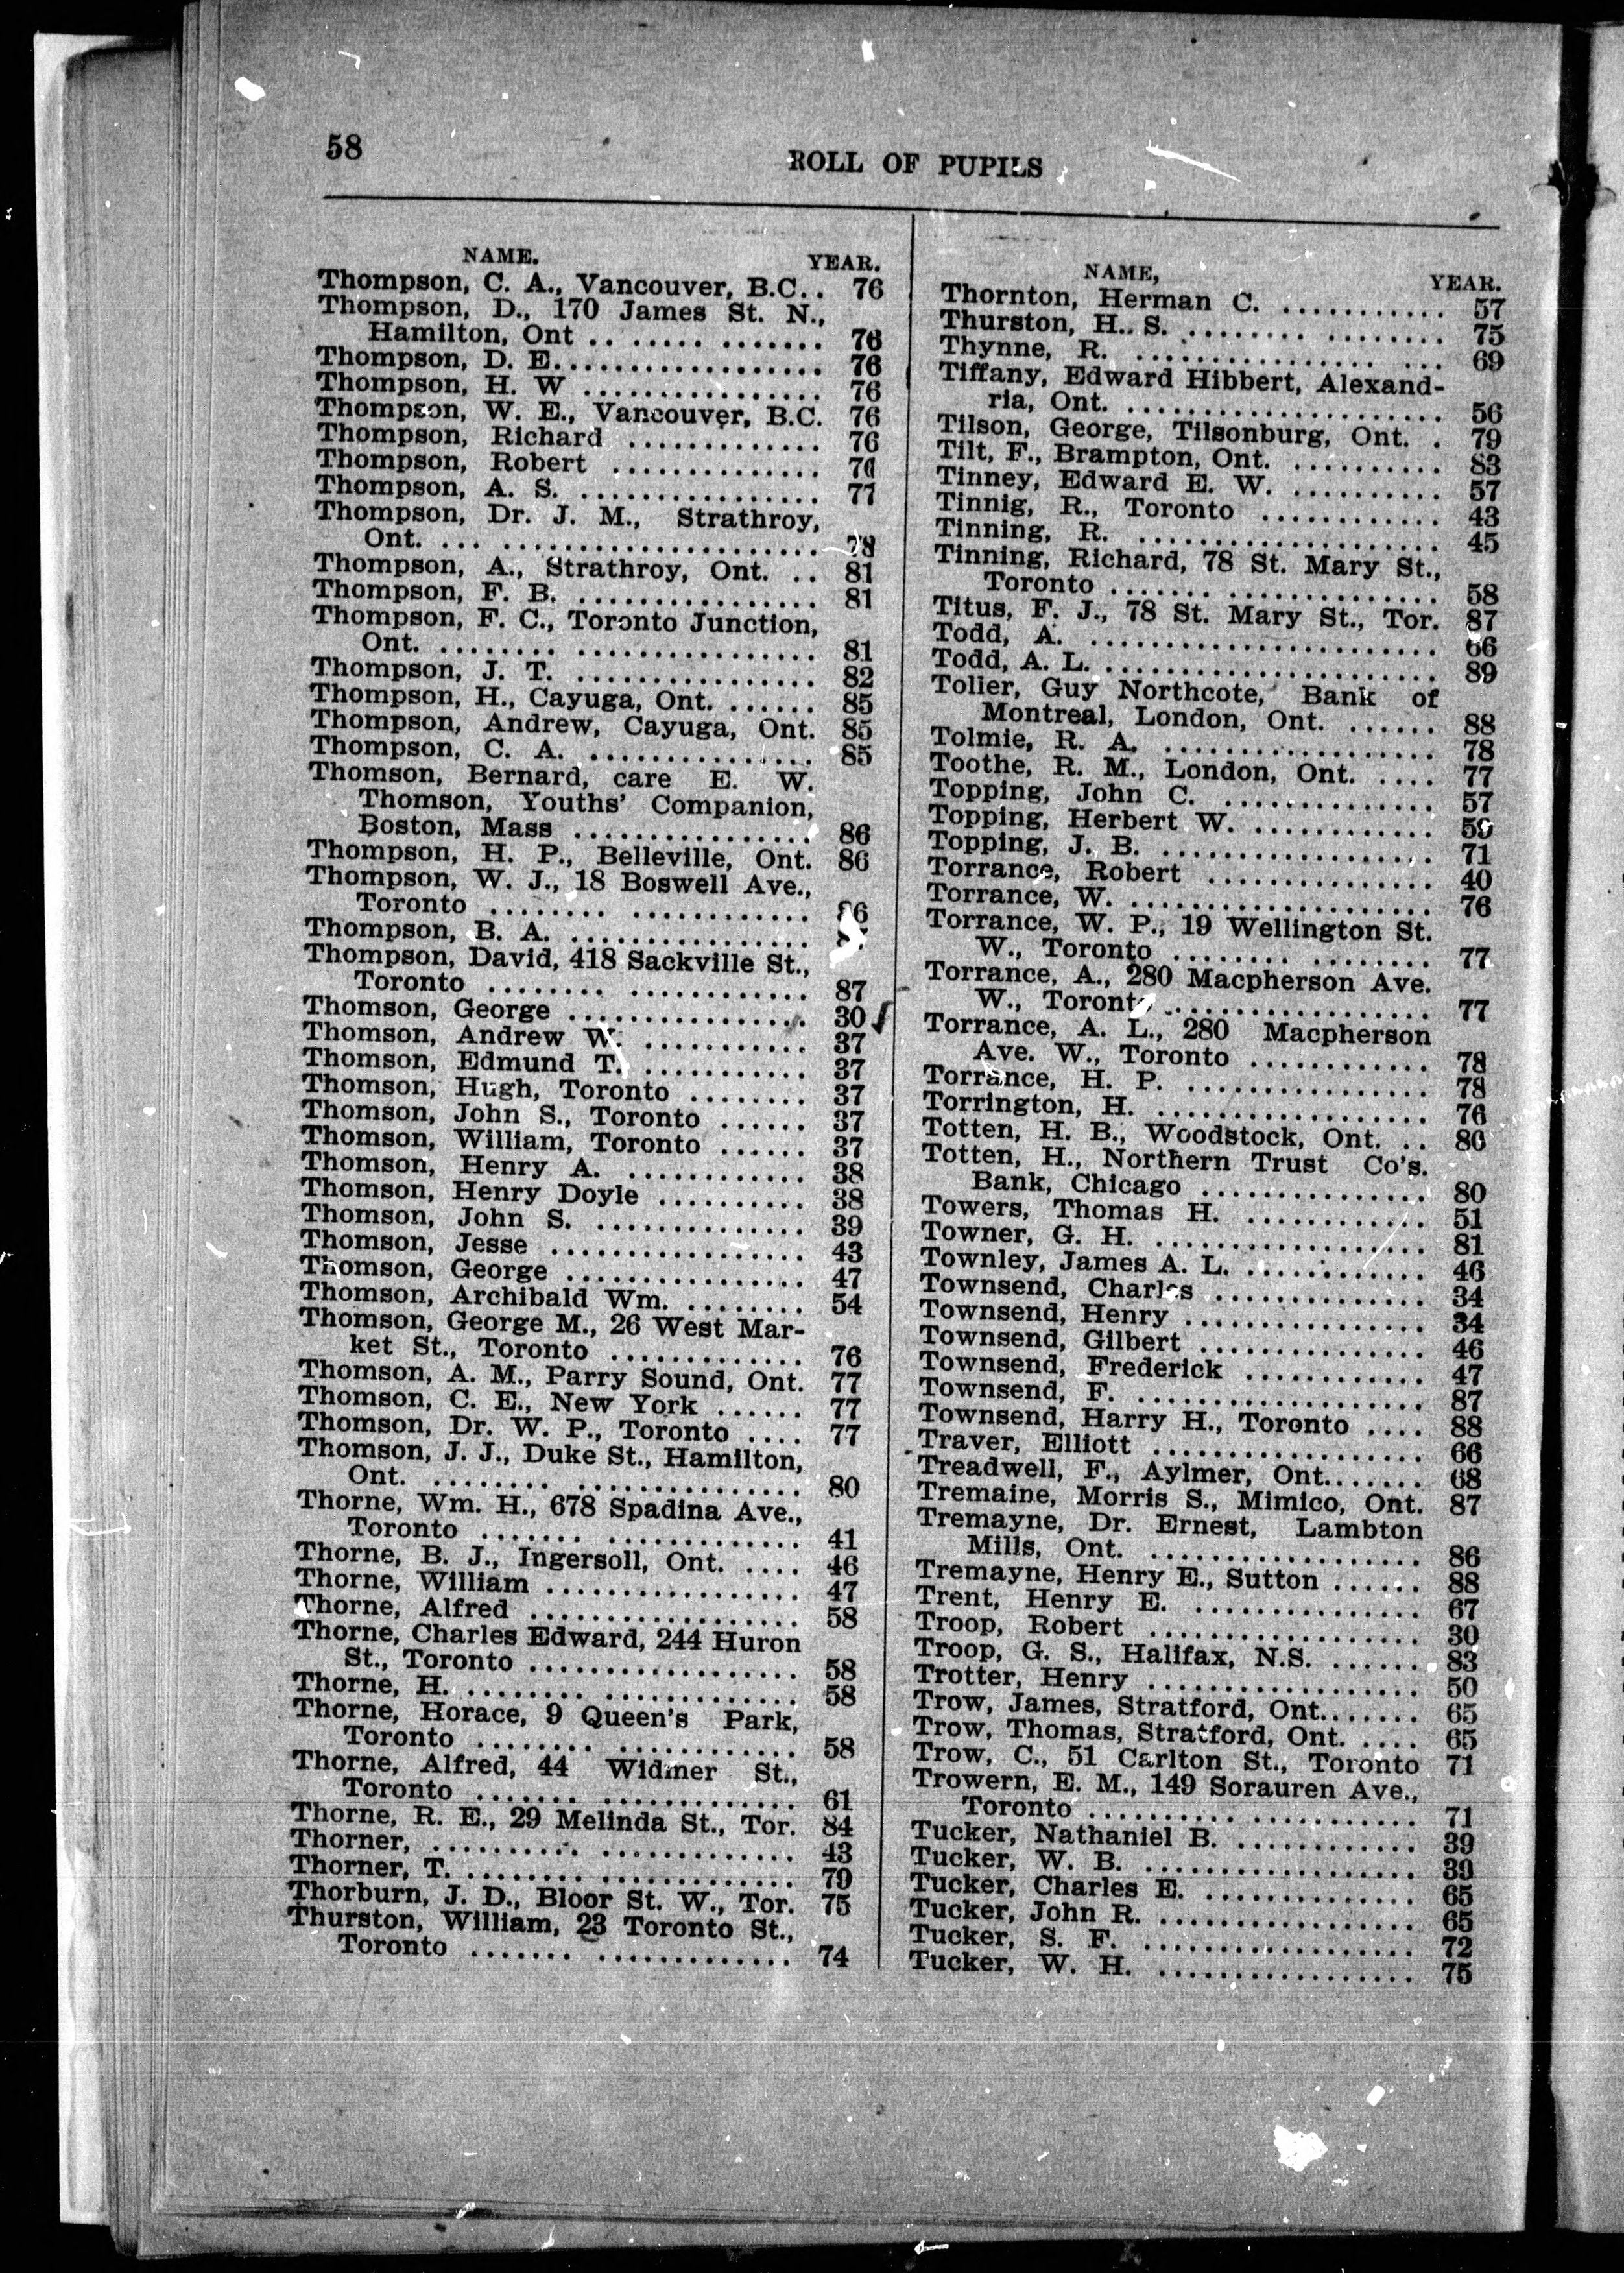 58
ROLL OF PUPILS
NAME. YEAR.
Thompson, C. A., Vancouver, B.C. . 76
Thompson, D., 170 James St. N.,
Hamilton, Ont .. ...... ....... 76
Thompson, D. E. ................. 76
Thompson, H. W ................ 76
Thompson, W. E., Vancouver, B.C. 76
Thompson, Richard ............. 76
Thompson, Robert ..............
Thompson, A. S. ................ 77
Thompson, Dr. J. M., Strathroy,
Ont. ... ..................... 78
Thompson, A., Strathroy, Ont. .. 81
Thompson, F. B. ................ 81
Thompson, F. C., Toronto Junction,
Ont. ........ ................ 81
Thompson, J. T. ................ 82
Thompson, H., Cayuga, Ont. ...... 85
Thompson, Andrew, Cayuga, Ont. 85
Thompson, C. A. ............... 85
Thomson, Bernard, care E. W.
Thomson, Youths' Companion,
Boston, Mass ................ 86
Thompson, H. P., Belleville, Ont. 86
Thompson, W. J., 18 Boswell Ave.,
Toronto ........ ............ 86
Thompson, B. A. ................
Thompson, David, 418 Sackville St.,
Toronto ........ ............ 87
Thomson, George ................ 30
Thomson, Andrew W. ........... 37
Thomson, Edmund T. ........... 37
Thomson, Hugh, Toronto ........ 37
Thomson, John S., Toronto ...... 37
Thomson, William, Toronto ...... 37
Thomson, Henry A. ............ 38
Thomson, Henry Doyle .......... 38
Thomson, John S. .............. 39
Thomson, Jesse ................. 43
Thomson, George ................ 47
Thomson, Archibald Wm. ........ 54
Thomson, George M., 26 West Mar-
ket St., Toronto ............. 76
Thomson, A. M., Parry Sound, Ont. 77
Thomson, C. E., New York ...... 77
Thomson, Dr. W. P., Toronto .... 77
Thomson, J. J., Duke St., Hamilton,
Ont. ........ ............... 80
Thorne, Wm. H., 678 Spadina Ave.,
Toronto ....... ............. 41
Thorne, B. J., Ingersoll, Ont. .... 46
Thorne, William ................. 47
Thorne, Alfred .................. 58
Thorne, Charles Edward, 244 Huron
St., Toronto .................. 58
Thorne, H. ........ ............. 58
Thorne, Horace, 9 Queen's Park,
Toronto ........ ............ 58
Thorne, Alfred, 44 Widmer St.,
Toronto ....... ............. 61
Thorne, R. E., 29 Melinda St., Tor. 84
Thorner, .......... ............. 43
Thorner, T. ........ ............. 79
Thorburn, J. D., Bloor St. W., Tor. 75
Thurston, William, 23 Toronto St.,
Toronto ....... ............. 74
NAME, YEAR.
Thornton, Herman C. ........... 57
Thurston, H. S. ......... ........ 75
Thynne, R. ................. ... 69
Tiffany, Edward Hibbert, Alexand-
ria, Ont. ..................... 56
Tilson, George, Tilsonburg, Ont. . 79
Tilt, F., Brampton, Ont. .......... 83
Tinney, Edward E. W. .......... 57
Tinnig, R., Toronto ............ 43
Tinning, R. .................... 45
Tinning, Richard, 78 St. Mary St.,
Toronto ....... .............. 58
Titus, F. J., 78 St. Mary St., Tor. 87
Todd, A. ....................... 66
Todd, A. L. ...................... 89
Toller, Guy Northcote, Bank of
Montreal, London, Ont. ...... 88
Tolmie, R. A. .................. 78
Toothe, R. M., London, Ont. .... 77
Topping, John C. .............. 57
Topping, Herbert W. ............ 59
Topping, J. B. .................. 71
Torrance, Robert ............... 40
Torrance, W. .................... 76
Torrance, W. P., 19 Wellington St.
W., Toronto ........ ........ 77
Torrance, A., 280 Macpherson Ave.
W., Toronto .................. 77
Torrance, A. L., 280 Macpherson
Ave. W., Toronto ............ 78
Torrance, H. P. ................ 78
Torrington, H. .................. 76
Totten, H. B., Woodstock, Ont. .. 80
Totten, H., Northern Trust Co's.
Bank, Chicago ............... 80
Towers, Thomas H. ............ 51
Towner, G. H. .................. 81
Townley, James A. L. ............ 46
Townsend, Charles .............. 34
Townsend, Henry ................ 34
Townsend, Gilbert ............... 46
Townsend, Frederick ............ 47
Townsend, F. ................... 87
Townsend, Harry H., Toronto .... 88
Traver, Elliott .................. 66
Treadwell, F., Aylmer, Ont....... 68
Tremaine, Morris S., Mimico, Ont. 87
Tremayne, Dr. Ernest, Lambton
Mills, Ont. .................. 86
Tremayne, Henry E., Sutton ...... 88
Trent, Henry E. ............... 67
Troop, Robert .................. 30
Troop, G. S., Halifax, N.S. ...... 83
Trotter, Henry .................. 50
Trow, James, Stratford, Ont....... 65
Trow, Thomas, Stratford, Ont. .... 65
Trow, C., 51 Carlton St., Toronto 71
Trowern, E. M., 149 Sorauren Ave.,
Toronto .......... ........... 71
Tucker, Nathaniel B. ............ 39
Tucker, W. B. .................. 39
Tucker, Charles E. .............. 65
Tucker, John R. ................. 65
Tucker, S. F. .................. 72
Tucker, W. H. ................. 75